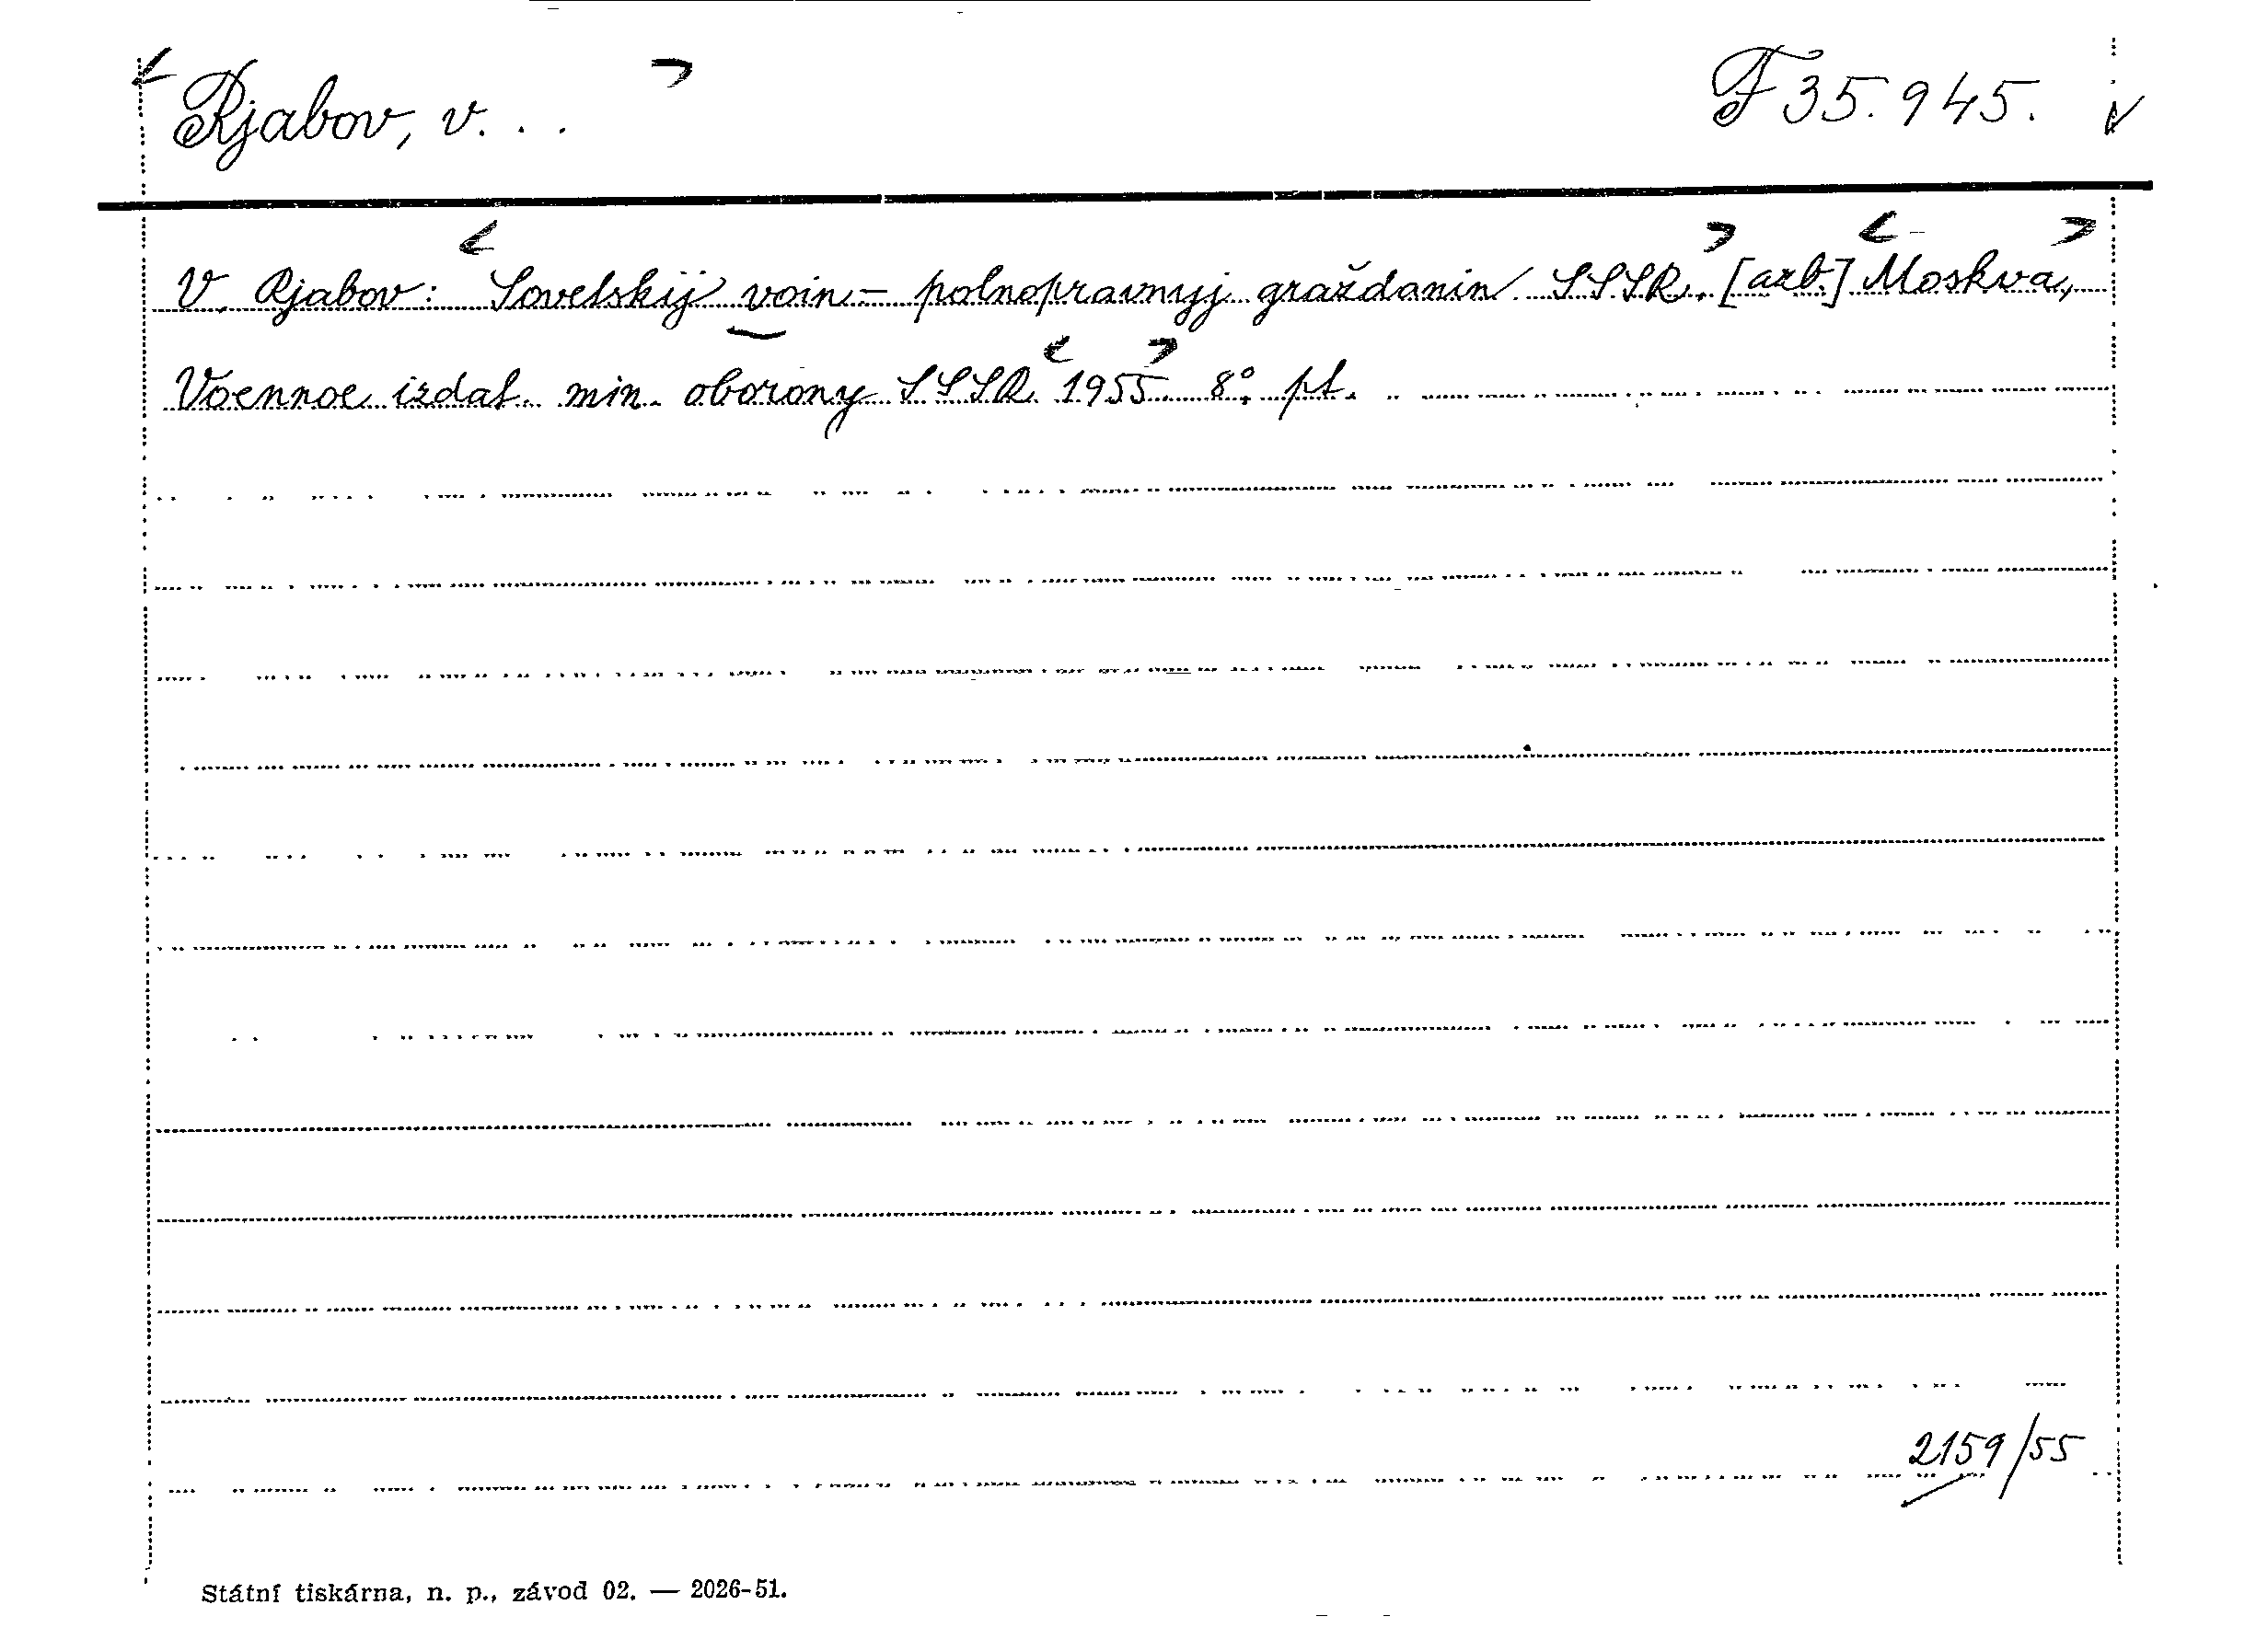 Rjabov, V. . .
F 35.945.
V. Rjabov: Sovetskij voin - polnopravnyj graždanin SSSR. [azb.] Moskva,
Voennoe izdat. min. oborony SSSR 1955. 8°. pt.
2159/55
Státní tiskárna, n. p., závod 02. — 2026-51.